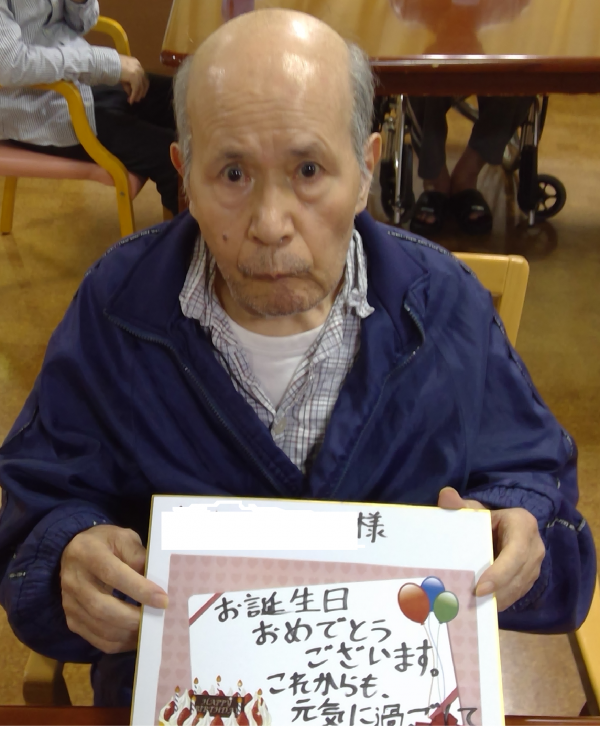 様
お誕生日
おめでとう
ございます。
これからも、
元気に過ごして
HAPPY
BIRTHDAY